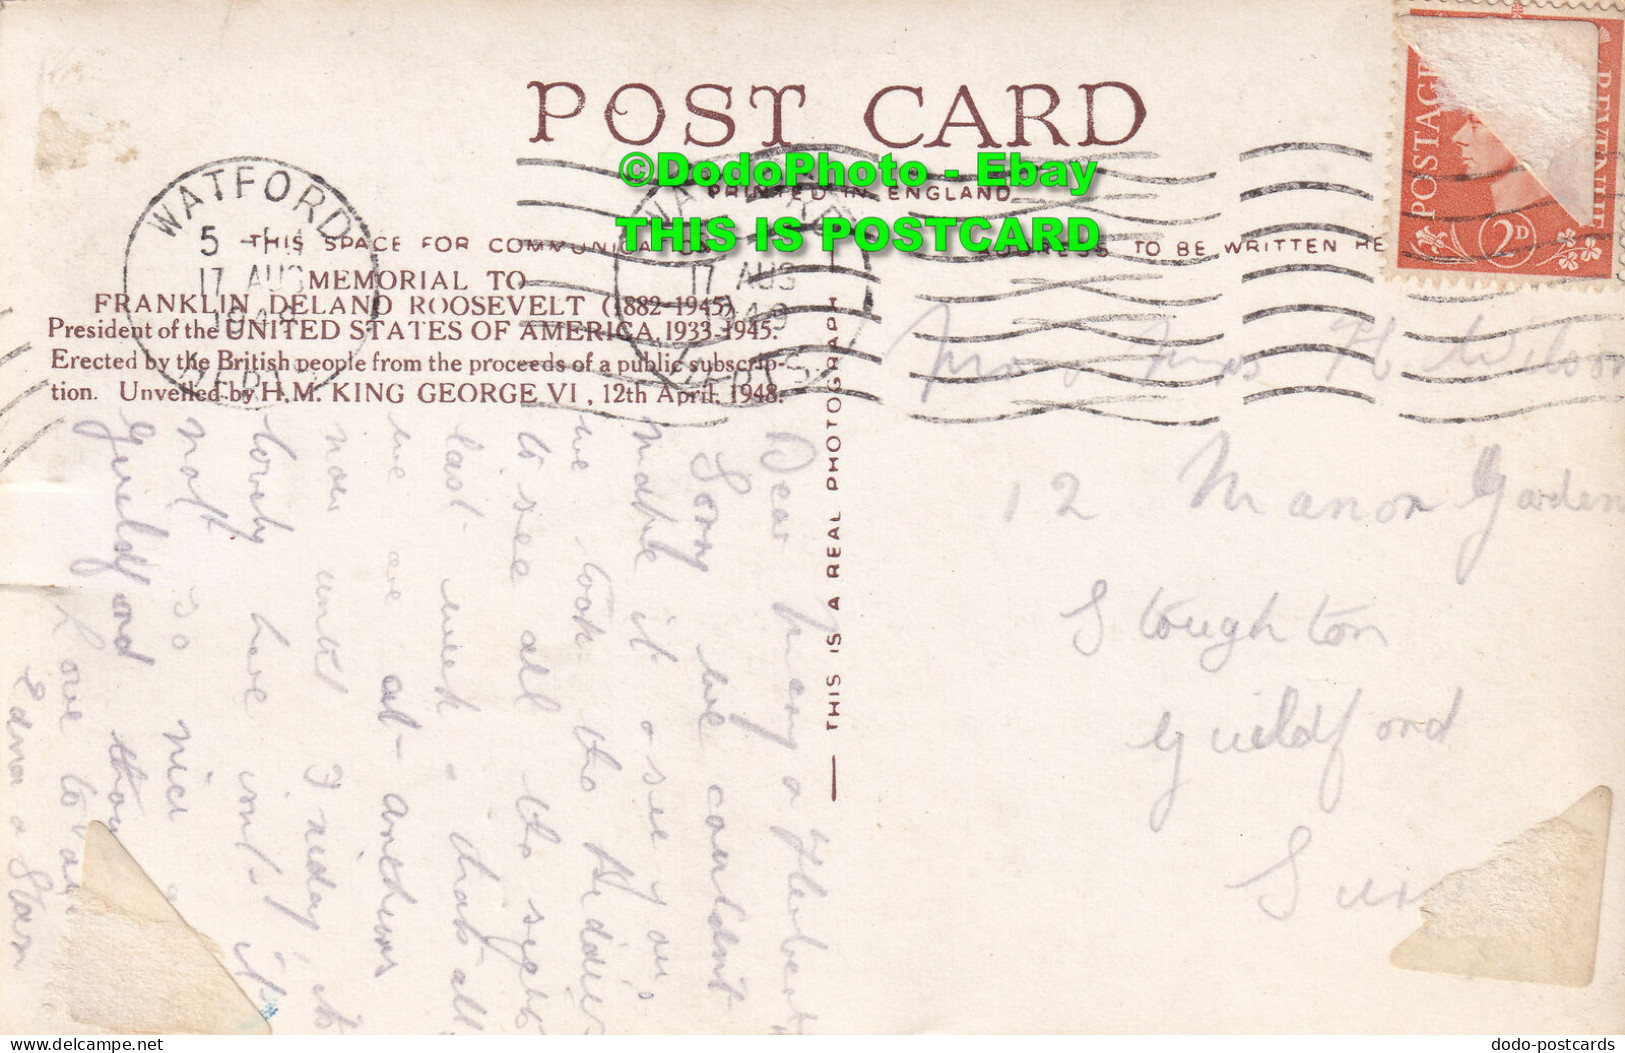 POST CARD
PRINTED IN ENGLAND
©DodoPhoto - Ebay
THIS IS POSTCARD
POSTAGE
REVENUE
2D
WATFORD
5
17 AUG
1948
HERTS
WATFORD
17 AUG
HERTS
THIS SPACE FOR COMMUNICATION
ADDRESS TO BE WRITTEN HE
MEMORIAL TO
FRANKLIN DELANO ROOSEVELT (1882–1945)
President of the UNITED STATES OF AMERICA, 1933–1945.
Erected by the British people from the proceeds of a public subscrip-
tion. Unveiled by H.M. KING GEORGE VI, 12th April, 1948.
— THIS IS A REAL PHOTOGRAPH
Mr & Mrs H Wilson
12 Manor Garden
Stoughton
Guildford
Surr
Dear Mary & Herbert
Sorry we couldn't
make it & see you,
we took the Kiddies
to see all the sights
last week. thats all
we are at
now until Friday, its
lovely here it's
not so nice as
Guildford
Love to all
Edna & Stan
dodo-postcards